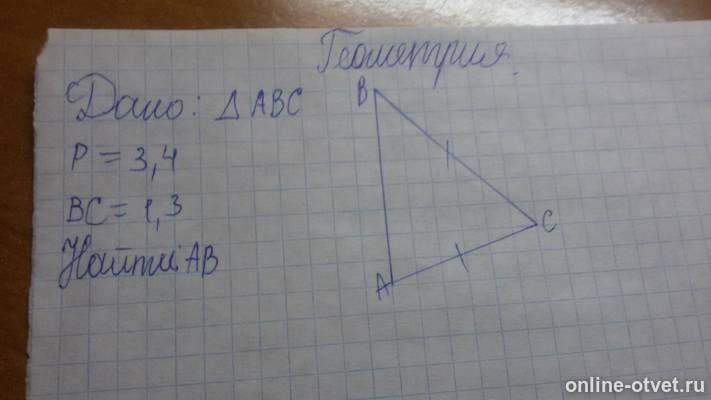 Геометрия.
Дано: △ ABC
P = 3,4
BC = 1,3
Найти: AB
B
C
A
online-otvet.ru